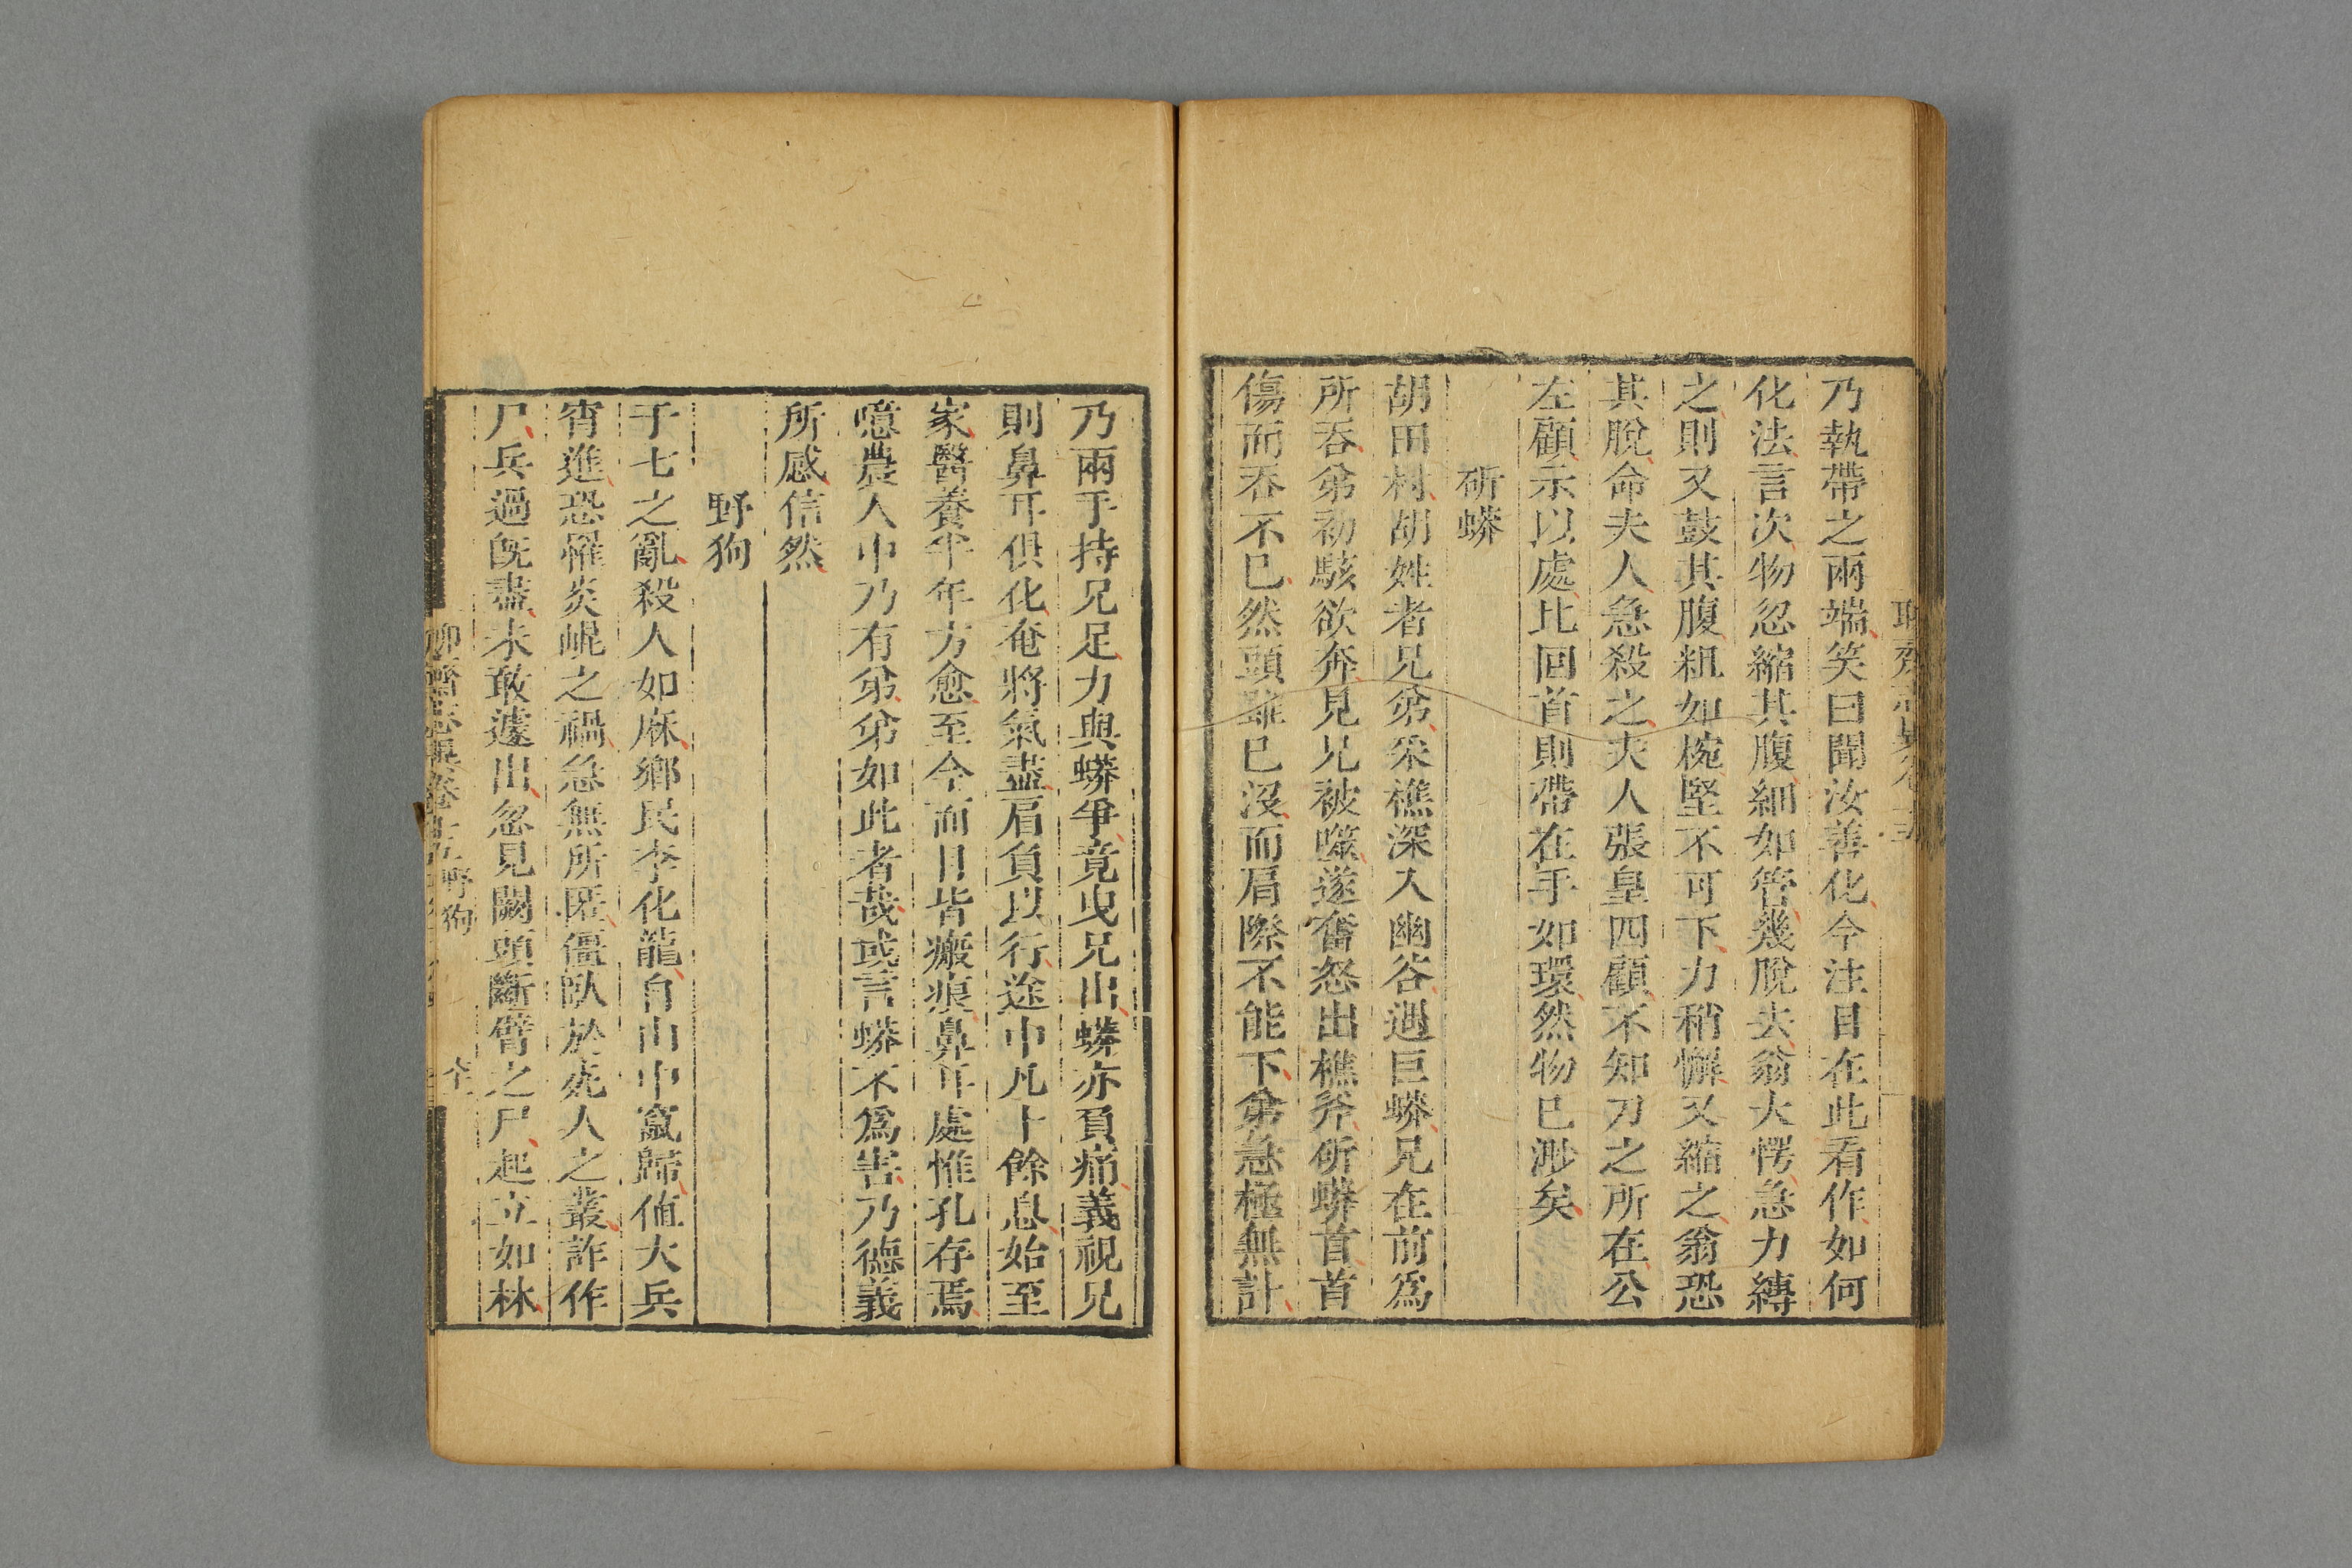 乃執帶之兩端笑曰聞汝善化今注目在此看作如何
化法言次物忽縮其腹細如管幾脫去翁大愕急力縛
之則又鼓其腹粗如椀堅不可下力稍懈又縮之翁恐
其脫命夫人急殺之夫人張皇四顧不知刀之所在公
左顧示以處比回首則帶在手如環然物已渺矣
斫蟒
胡田村胡姓者兄弟采樵深入幽谷遇巨蟒兄在前爲
所吞弟初駭欲奔見兄被噬遂奮怒出樵斧斫蟒首首
傷而吞不已然頭雖已沒而肩際不能下弟急極無計
乃兩手持兄足力與蟒爭竟曳兄出蟒亦負痛義視兄
則鼻耳俱化奄將氣盡肩負以行途中凡十餘息始至
家醫養半年方愈至今面目皆瘢痕鼻耳處惟孔存焉
噫農人中乃有弟弟如此者哉或言蟒不爲害乃德義
所感信然
野狗
于七之亂殺人如麻鄉民李化龍自山中竄歸値大兵
宵進恐罹炎崐之禍急無所匿僵臥於死人之叢詐作
尸兵過旣盡未敢遽出忽見闕頭斷臂之尸起立如林
聊齋志異卷十五 野狗